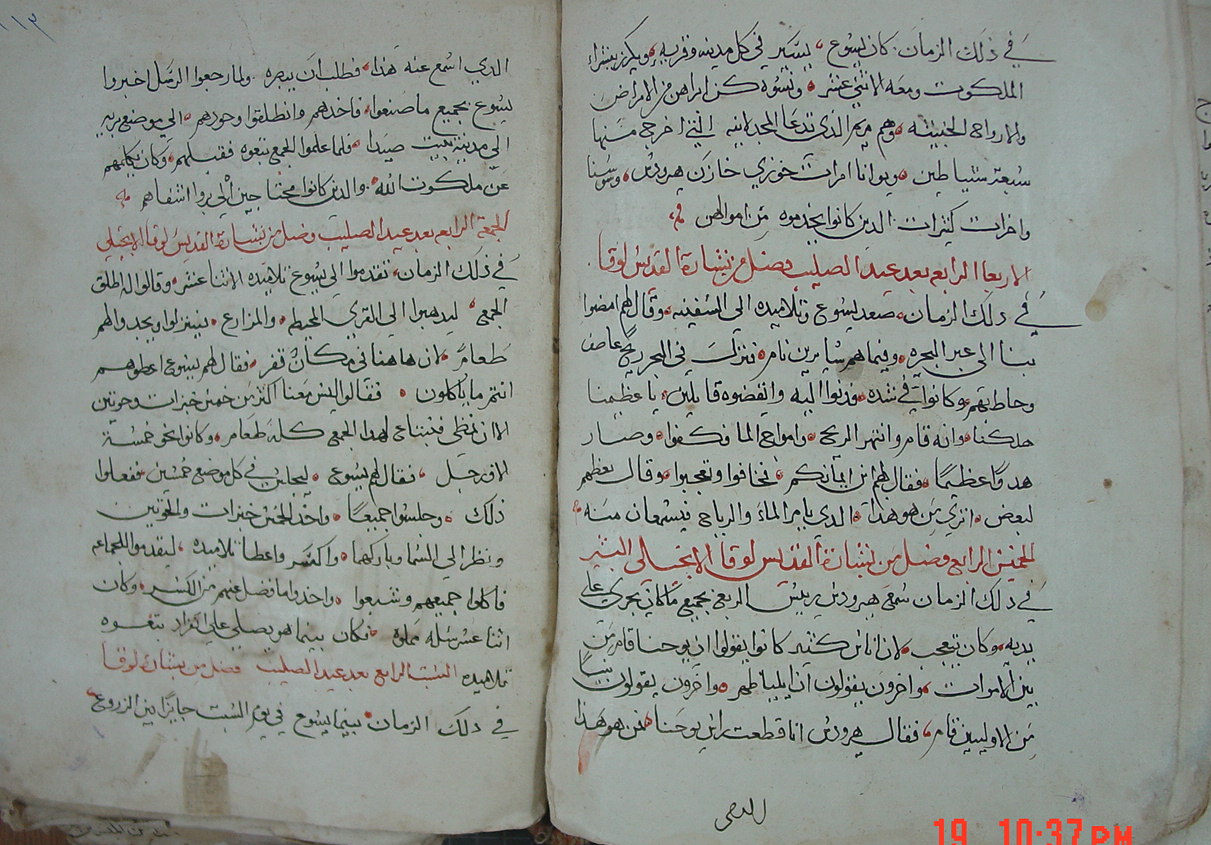 في ذلك الزمان كان يسوع يسير في كل مدينه وقريه ويكرز بشراء
الملكوت ومعه الاثني عشر ونسوه كن ابراهن من الامراض
والارواح الخبيثه وهم مريم الذي تدعا المجدلانيه التي اخرج منها
سبعة شياطين ويوانا امرات خوزي خازن هيرودس وسوسنا
واخرات كثيرات الدين كانوا يخدموه من اموالهن
الاربعا الرابع بعد عيد الصليب فصل من بشارة القديس لوقا
في ذلك الزمان صعد يسوع وتلاميذه الى السفينه وقال لهم امضوا
بنا الى عبر البحيره وفيما هم سايرين نام فنزلت في البحر ريح عاصف
وحاطت بهم وكانوا في شده ودنوا اليه وانهضوه قايلين يا عظيمنا
هلكنا وانه قام وانتهر الريح وامواج الما فكفوا وصار
هدوا عظيما فقال لهم اين ايمانكم فخافوا وتعجبوا وقال بعظهم
لبعض اتري من هو هذا الدي يامر الماء والرياح فيسمعان منه
الخميس الرابع فصل من بشارة القديس لوقا الانجيلي البشير
في ذلك الزمان سمع هيرودس رييس الربع بجميع ما كان يجري على
يديه وكان يتعجب لان اناس كثير كانوا يقولوا ان يوحنا قام من
بين الاموات واخرون يقولون ان ايليا ظهر واخرون يقولون نبيا
من الاوليين قام فقال هيرودس انا قطعت راس يوحنا فمن هو هذا
١١٣
الدي اسمع عنه هذا فطلب ان يبصره ولما رجعوا الرسل اخبروا
ليسوع بجميع ما صنعوا فاخدهم وانطلقوا وحودهم الي موضع بريه
الى مدينة بيت صيدا فلما علموا الجمع تبعوه فقبلهم وكان يكلمهم
عن ملكوت الله والدين كانوا محتاجين الي بروا اشفاهم
الجمعة الرابع بعد عيد الصليب فصل من بشارة القديس لوقا الانجيلي
في ذلك الزمان تقدموا الي يسوع تلاميذه الاثنا عشر وقالوا له اطلق
الجمع ليدهبوا الى القري المحيطه والمزارع ينزلوا ويجدوا لهم
طعام لان هاهنا في مكان قفر فقال لهم يسوع اعطوهم
انتم ما ياكلون فقالوا ليس معنا اكثر من خمس خبزات وحوتين
الا ان نمظي فنبتاع لهدا الجمع كله طعام وكانوا نحو خمسة
الاف رجل فقال لهم يسوع ليجلس في كل موضع خمسين ففعلوا
ذلك وجلسوا جميعا واخد الخمس خبزات والحوتين
ونظر الي السما وباركهما واكسر واعطا تلاميذه ليقدموا للجماعه
فاكلوا جميعهم وشبعوا واخدوا ما فضل عنهم من الكسر وكان
اثنا عشر سله مملوه فكان بينما هو يصلي على انفراد تبعوه
تلاميذه السبت الرابع بعد عيد الصليب فصل من بشارة لوقا
في ذلك الزمان بينما يسوع في يوم السبت جايزا بين الزروع
19 10:37 PM